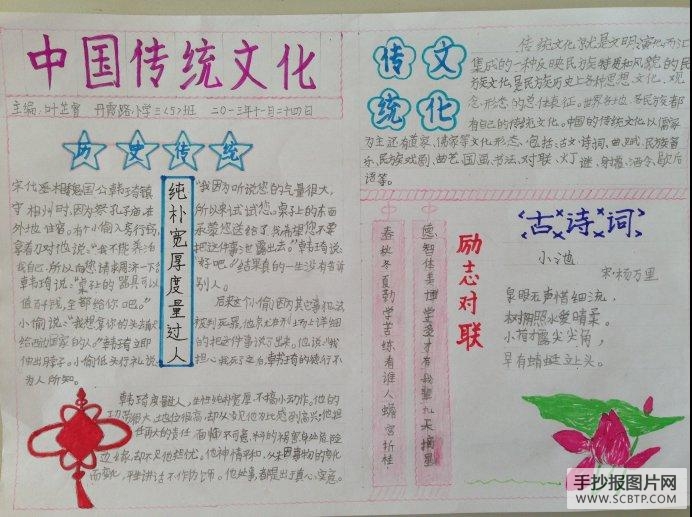 中国传统文化
主编:叶芷曾 丹霞路小学三〈5〉班 二〇一三年十一月二十四日
历史传统
纯朴宽厚度量过人
宋代丞相魏国公韩琦镇
守相州时,因祭孔子庙在
外地住宿。有个小偷入客行窃,
拿着刀对他说:"我不能养活
我自己,所以向您请求周济一下。"
韩琦说:"桌上的器具可以
值百千钱,全都给你吧。"
小偷说:"我想拿你的头去献
给西边国家的人。"韩琦立即
伸出脖子。小偷低头行礼说:
"我因为听说您的气量很大,
所以来试试您。桌子上的东西
承蒙您送给了我,希望您不要
把这件事泄露出去。"韩琦说:
"好吧。"结果真的一生没有告诉
别人。
后来这个小偷因为其它事犯法
被判死罪,他于是在刑场上详细
的把这件事说了出来。他说:"我
担心我死了之后,韩琦的德行不
为人所知。
韩琦度量过人,生性纯朴宽厚,不搞小动作。他的
功劳很大,地位很高,却从没见他为此感到高兴;他担
任再大的责任
边缘,却不见他担忧。
而变化,平生讲话不作伪饰。
传文
统化
传统文化就是文明演化而汇
集成的一种反映民族特质和风貌的民
族文化,是民族历史上各种思想文化、观
念形态的总体表征。世界各地,各民族都
有自己的传统文化。中国的传统文化以儒家
为主还有道家、佛家等文化形态,包括:古文、诗词、曲、赋、民族音
乐、民族戏剧、曲艺、国画、书法、对联、灯谜、射覆、酒令、歇后
语等。
励志对联
德智体美博堂多才有我辈九天摘星
春秋冬夏勤学苦练看谁人蟾宫折桂
古诗词
小池
宋·杨万里
泉眼无声惜细流,
树阴照水爱晴柔。
小荷才露尖尖角,
早有蜻蜓立上头。
手抄报图片网
WWW.SCBTP.COM